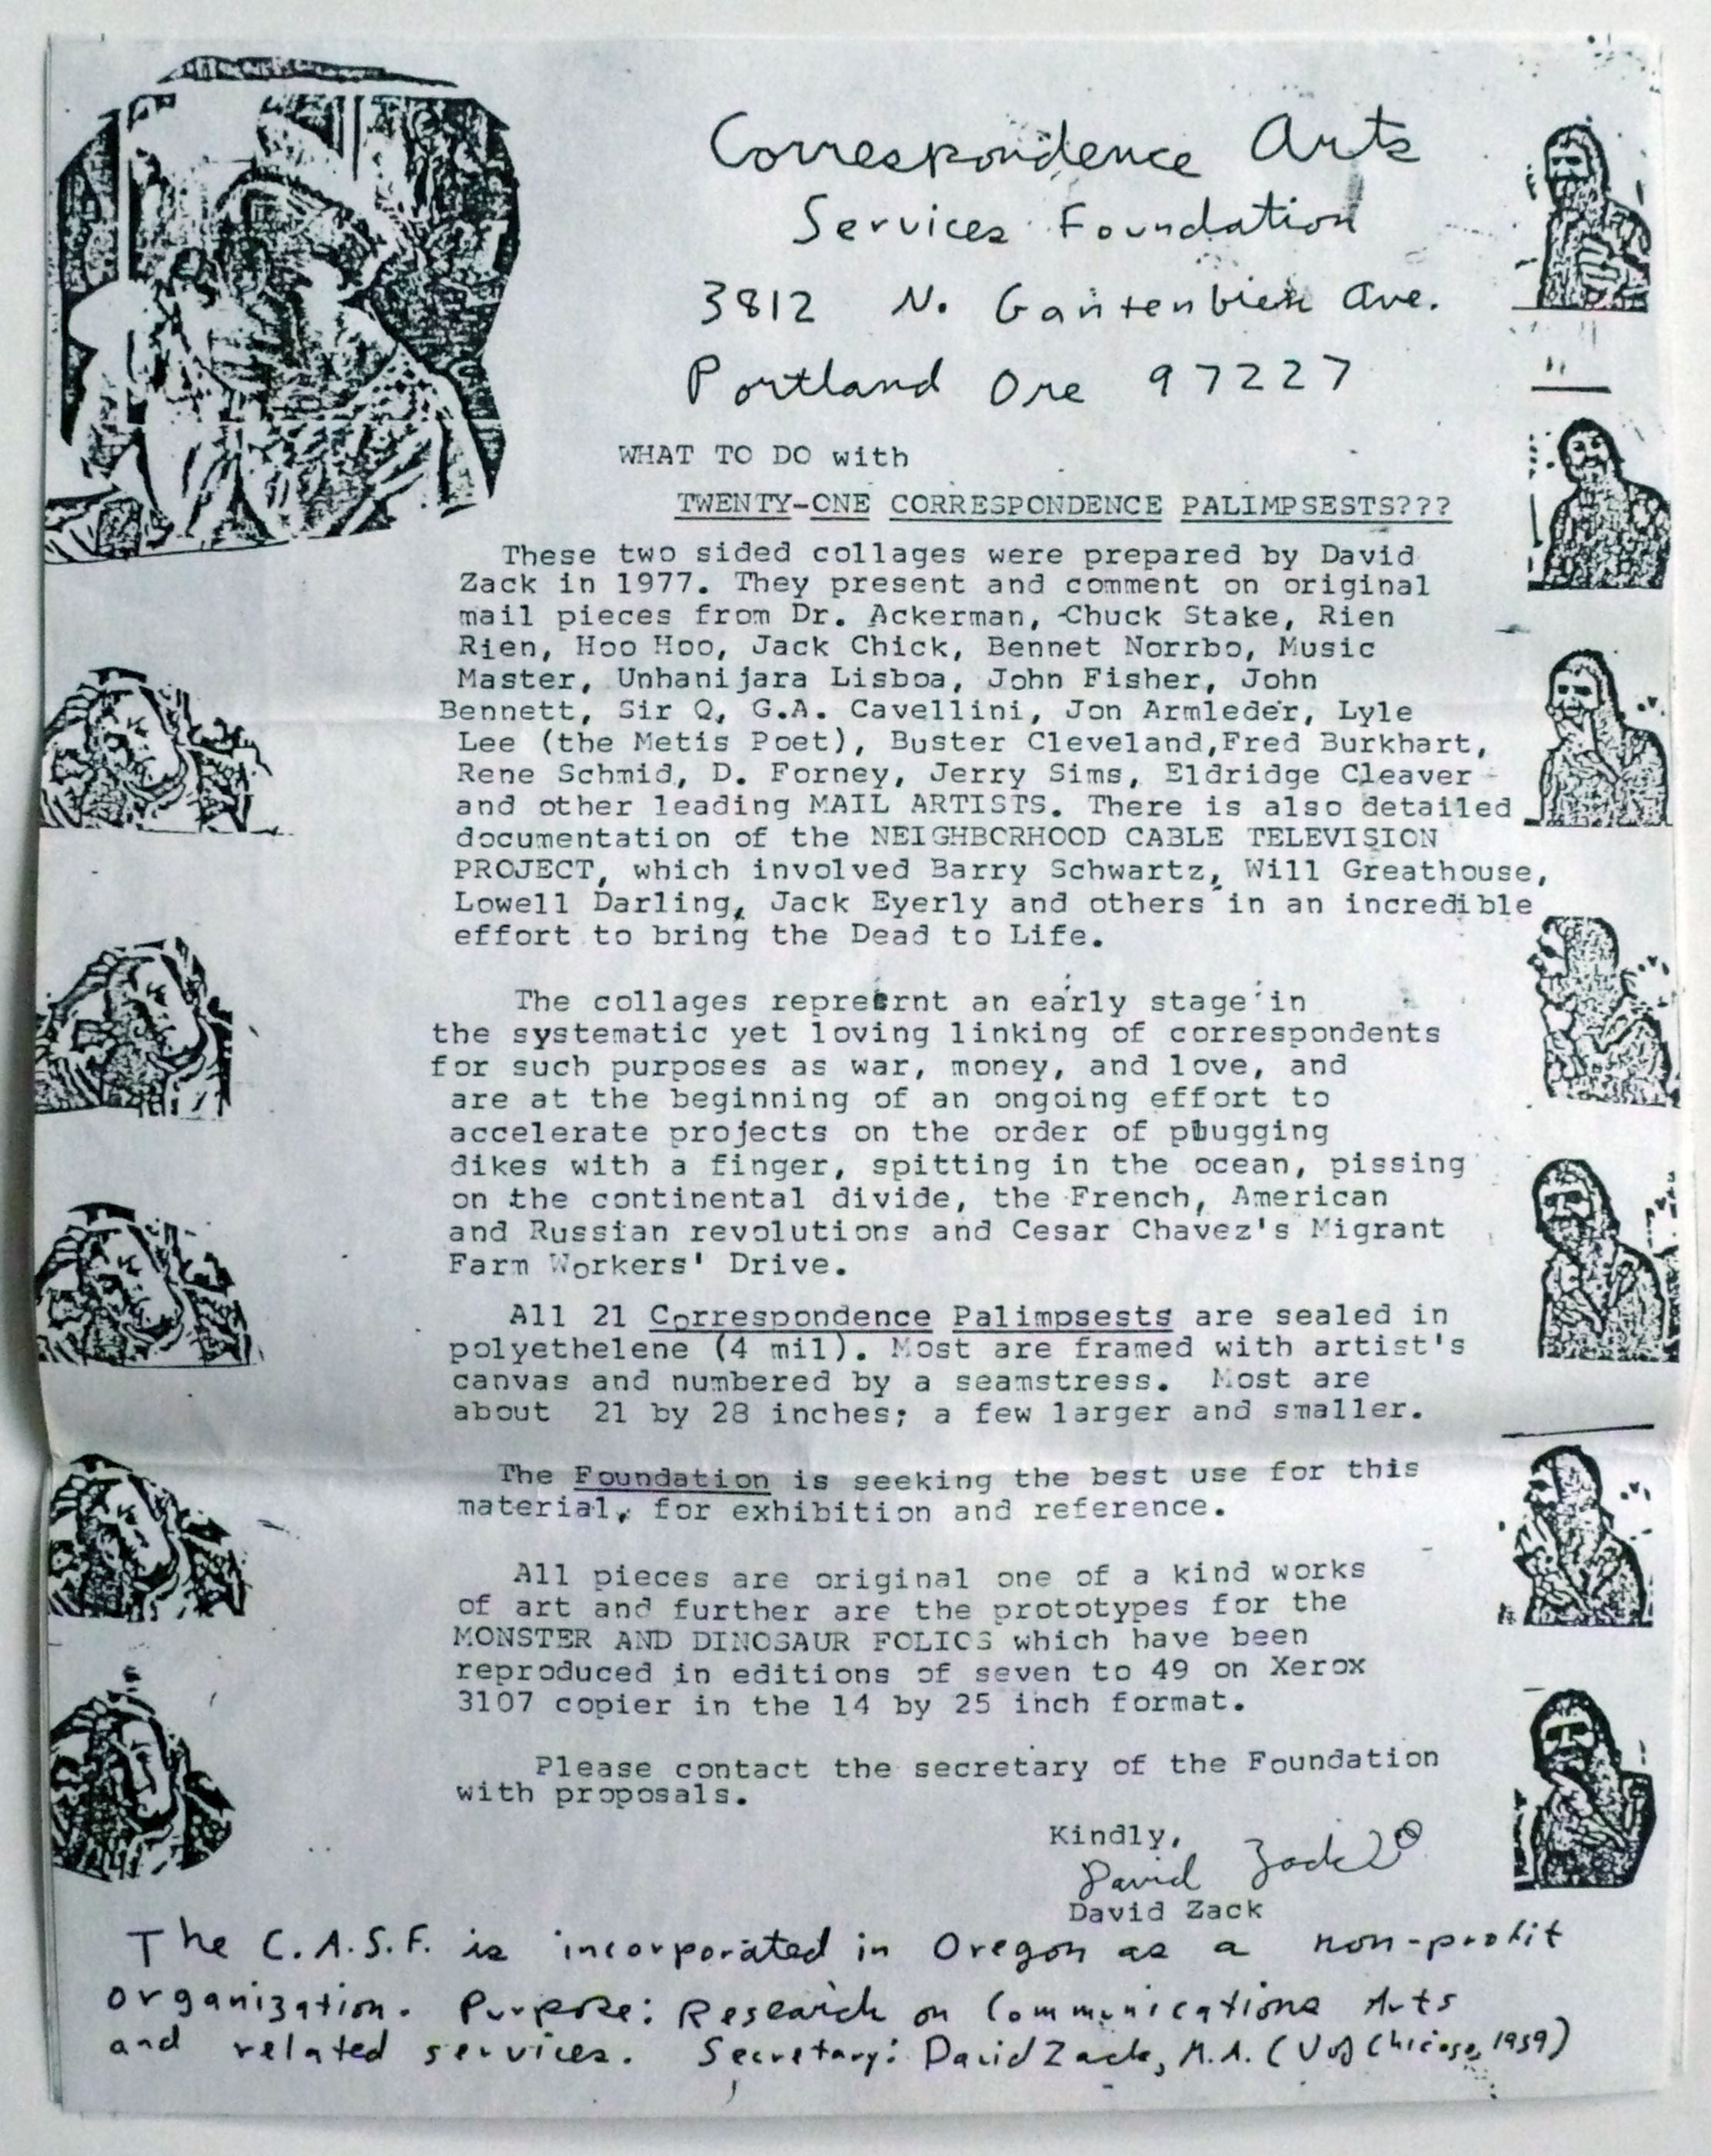 Correspondence Arts
Services Foundation
3812 N. Gantenbien Ave.
Portland Ore 97227
WHAT TO DO with
TWENTY-ONE CORRESPONDENCE PALIMPSESTS???
These two sided collages were prepared by David
Zack in 1977. They present and comment on original
mail pieces from Dr. Ackerman, Chuck Stake, Rien
Rien, Hoo Hoo, Jack Chick, Bennet Norrbo, Music
Master, Unhanijara Lisboa, John Fisher, John
Bennett, Sir Q, G.A. Cavellini, Jon Armleder, Lyle
Lee (the Metis Poet), Buster Cleveland,Fred Burkhart,
Rene Schmid, D. Forney, Jerry Sims, Eldridge Cleaver
and other leading MAIL ARTISTS. There is also detailed
documentation of the NEIGHBORHOOD CABLE TELEVISION
PROJECT, which involved Barry Schwartz, Will Greathouse,
Lowell Darling, Jack Eyerly and others in an incredible
effort to bring the Dead to Life.
The collages an early stage in
the systematic yet loving linking of correspondents
for such purposes as war, money, and love, and
are at the beginning of an ongoing effort to
accelerate projects on the order of plugging
dikes with a finger, spitting in the ocean, pissing
on the continental divide, the French, American
and Russian revolutions and Cesar Chavez's Migrant
Farm Workers' Drive.
All 21 Correspondence Palimpsests are sealed in
polyethelene (4 mil). Most are framed with artist's
canvas and numbered by a seamstress. Most are
about 21 by 28 inches; a few larger and smaller.
The Foundation is seeking the best use for this
material, for exhibition and reference.
All pieces are original one of a kind works
of art and further are the prototypes for the
MONSTER AND DINOSAUR FOLIOS which have been
reproduced in editions of seven to 49 on Xerox
3107 copier in the 14 by 25 inch format.
Please contact the secretary of the Foundation
with proposals.
Kindly,
David Zack
David Zack
The C.A.S.F. is incorporated in Oregon as a non-profit
organization. Purpose: Research on Communications Arts
and related services. Secretary: David Zack, M.A. (U of Chicago, 1959)